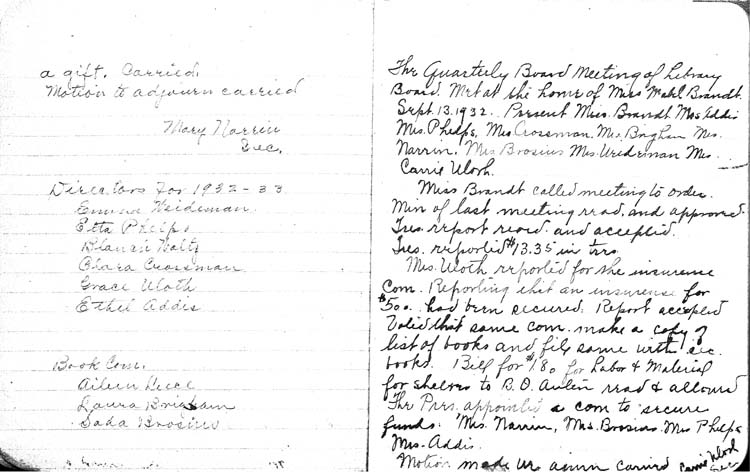 a gift. Carried.
Motion to adjourn carried
Mary Narrin
Sec.
Directors for 1932-33
Emma Weideman
Etta Phelps
Waltz
Clara Crossman
Grace Uloth
Ethel Addis
Book Com.
Aileen
Laura Brigham
Sada Brosius
The Quarterly Board Meeting of Library
Board. Met at the home of Miss Mabl Brandt.
Sept. 13. 1932. Present Miss. Brandt Mrs. Addis
Mrs Phelps, Mrs Crossman, Mrs. Brigham Mrs.
Narrin. Mrs Brosius Mrs. Weideman Mrs.
Carrie Uloth.
Miss Brandt called meeting to order.
Min of last meeting read, and approved.
Tres. report read. and accepted.
Tres. reported $13.35 in tres.
Mrs. Uloth reported for the insurense
Com. Reporting that an insurense for
$500. had been secured. Report accepted
Voted that same com. make a copy of
list of books and file same with sec.
books. Bill for $1.80 for Labor & Material
for shelves to B. O. read & allowed
The Pres. appointed a com to secure
funds. Mrs. Narrin, Mrs. Brosius Mrs Phelps
Mrs. Addis.
Motion made carried Carrie Uloth
Sec